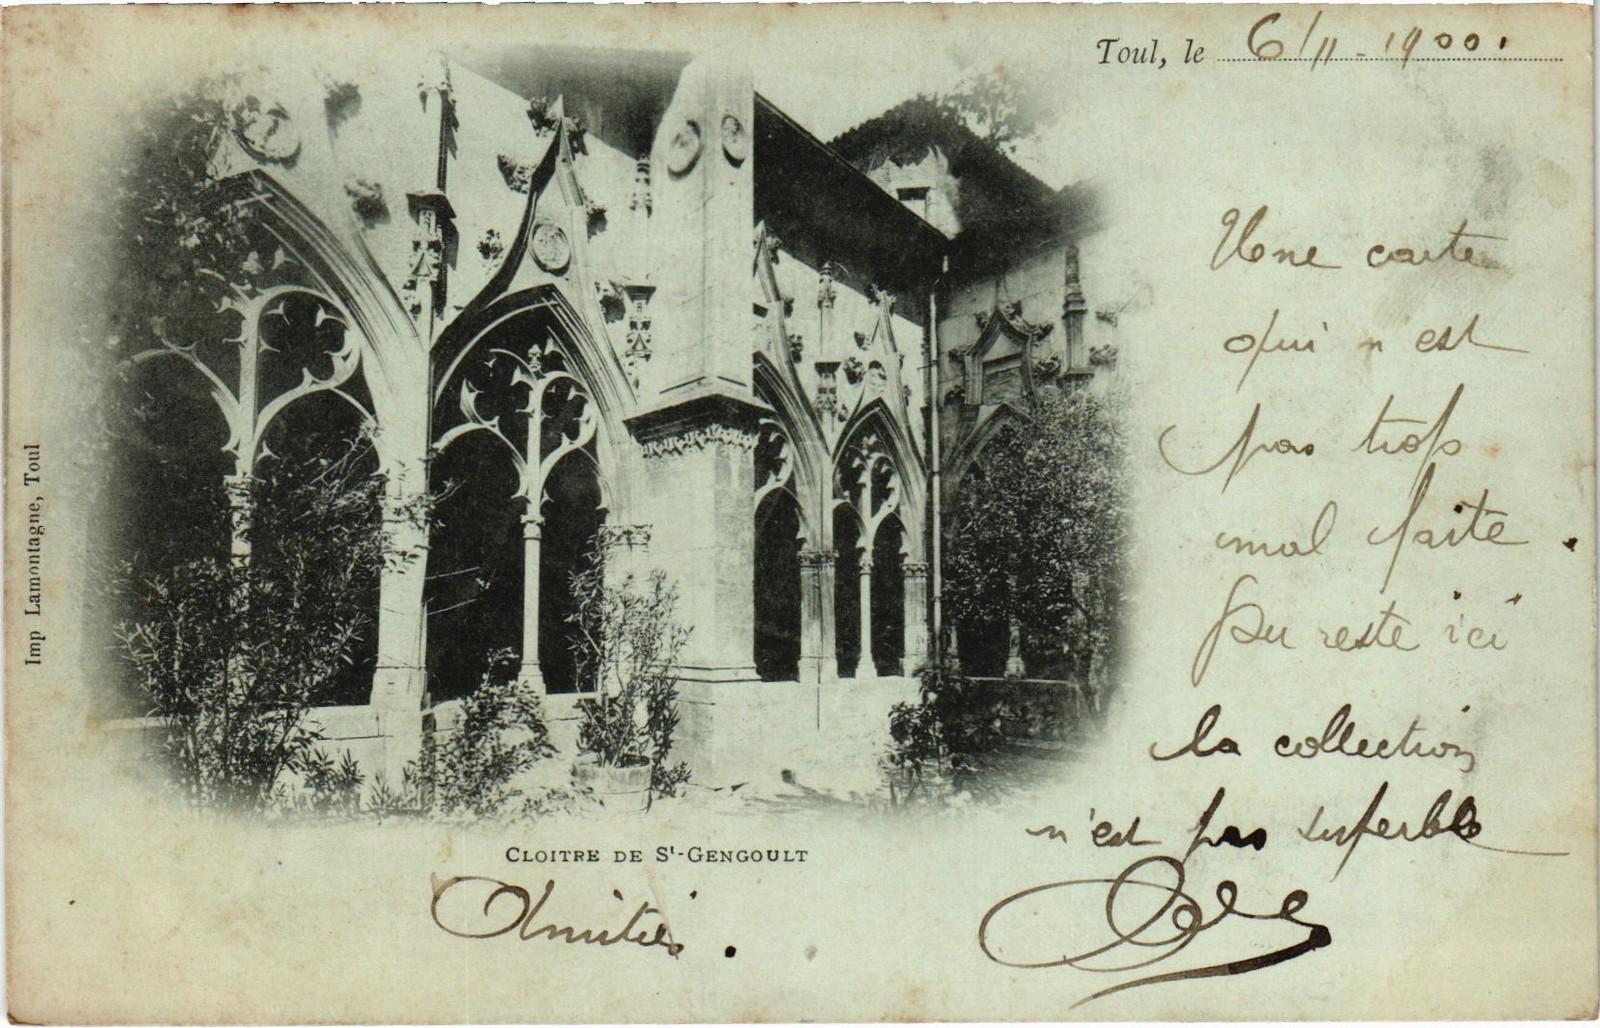 Toul, le 6/11 - 1900.
Une carte
qui n'est
pas trop
mal faite.
Du reste ici
la collection
n'est pas superbe
CLOITRE DE St-GENGOULT
Amitiés.
Imp Lamontagne, Toul